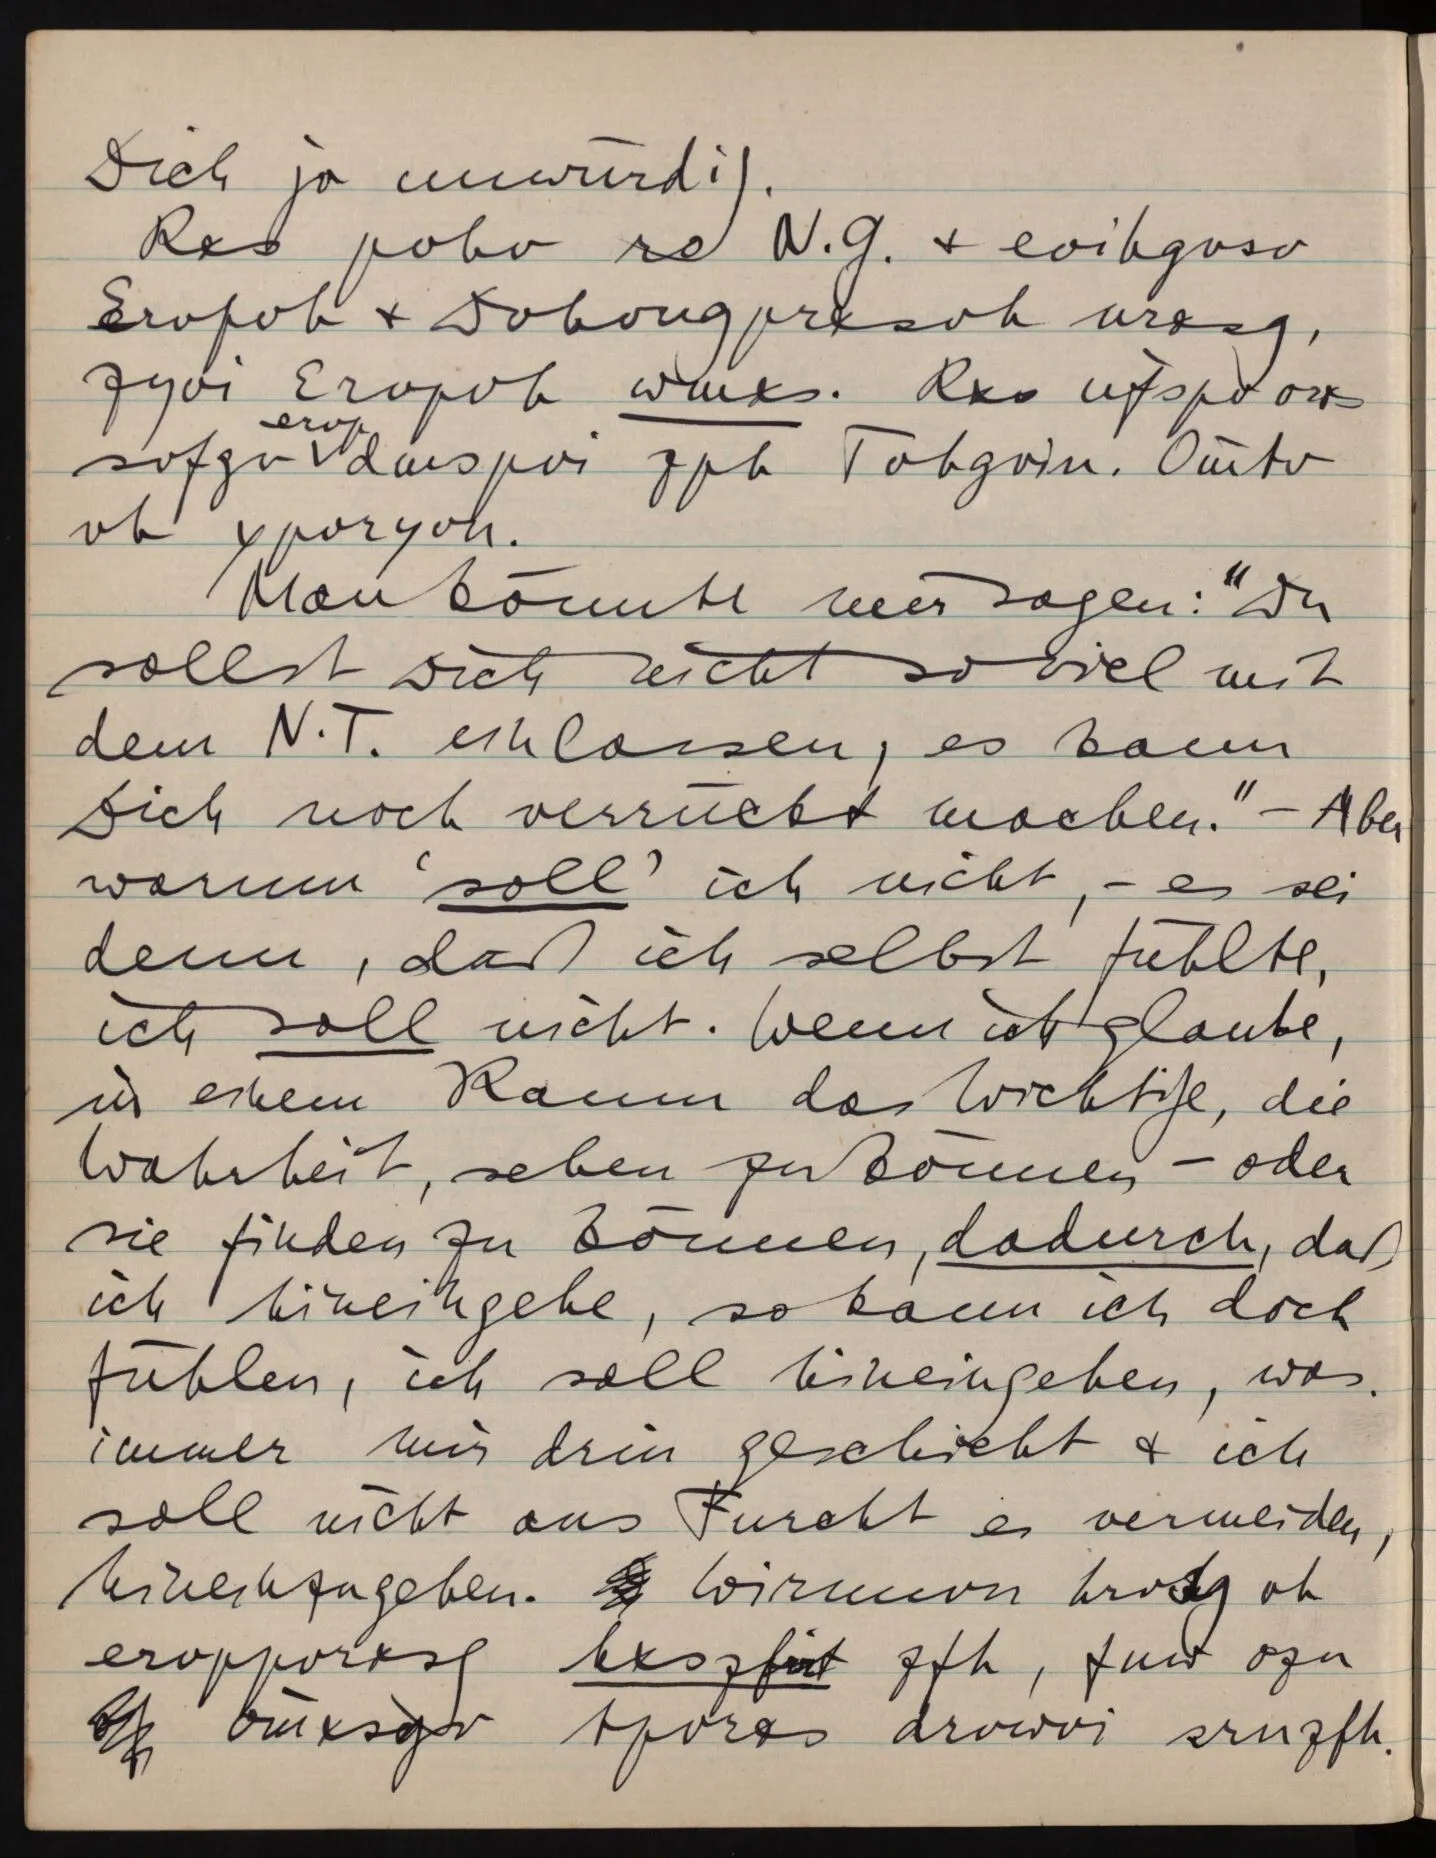 Dich ja unwürdig.
Rxs pvhv ro N.G. & evihgvsv
Ervpvh & Wvhvngprxsvh nrxsg,
zyvi Ervpvh wmxs. Rxs uf̈spv orxs
svfgv ervp dmspvi zph Tvhgvin. Om̈tv
vh ypvryvn.
Man könnte mir sagen: "Du
sollst Dich nicht so viel mit
dem N.T. einlassen, es kann
Dich noch verrückt machen." – Aber
warum 'soll' ich nicht, – es sei
denn, daß ich selbst fühlte,
ich soll nicht. Wenn ich glaube,
in einem Raum das Wichtige, die
Wahrheit, sehen zu können – oder
sie finden zu können, dadurch, daß
ich hineingehe, so kann ich doch
fühlen, ich soll hineingehen, was
immer mir drin geschieht & ich
soll nicht aus Furcht es vermeiden,
hineinzugehen. Wirnnvn hrvsg vh
ervppvrxsg hxszfirt zfh, fnw ozn
om̈xsgv tpvrxs drvwvi srnzfh.